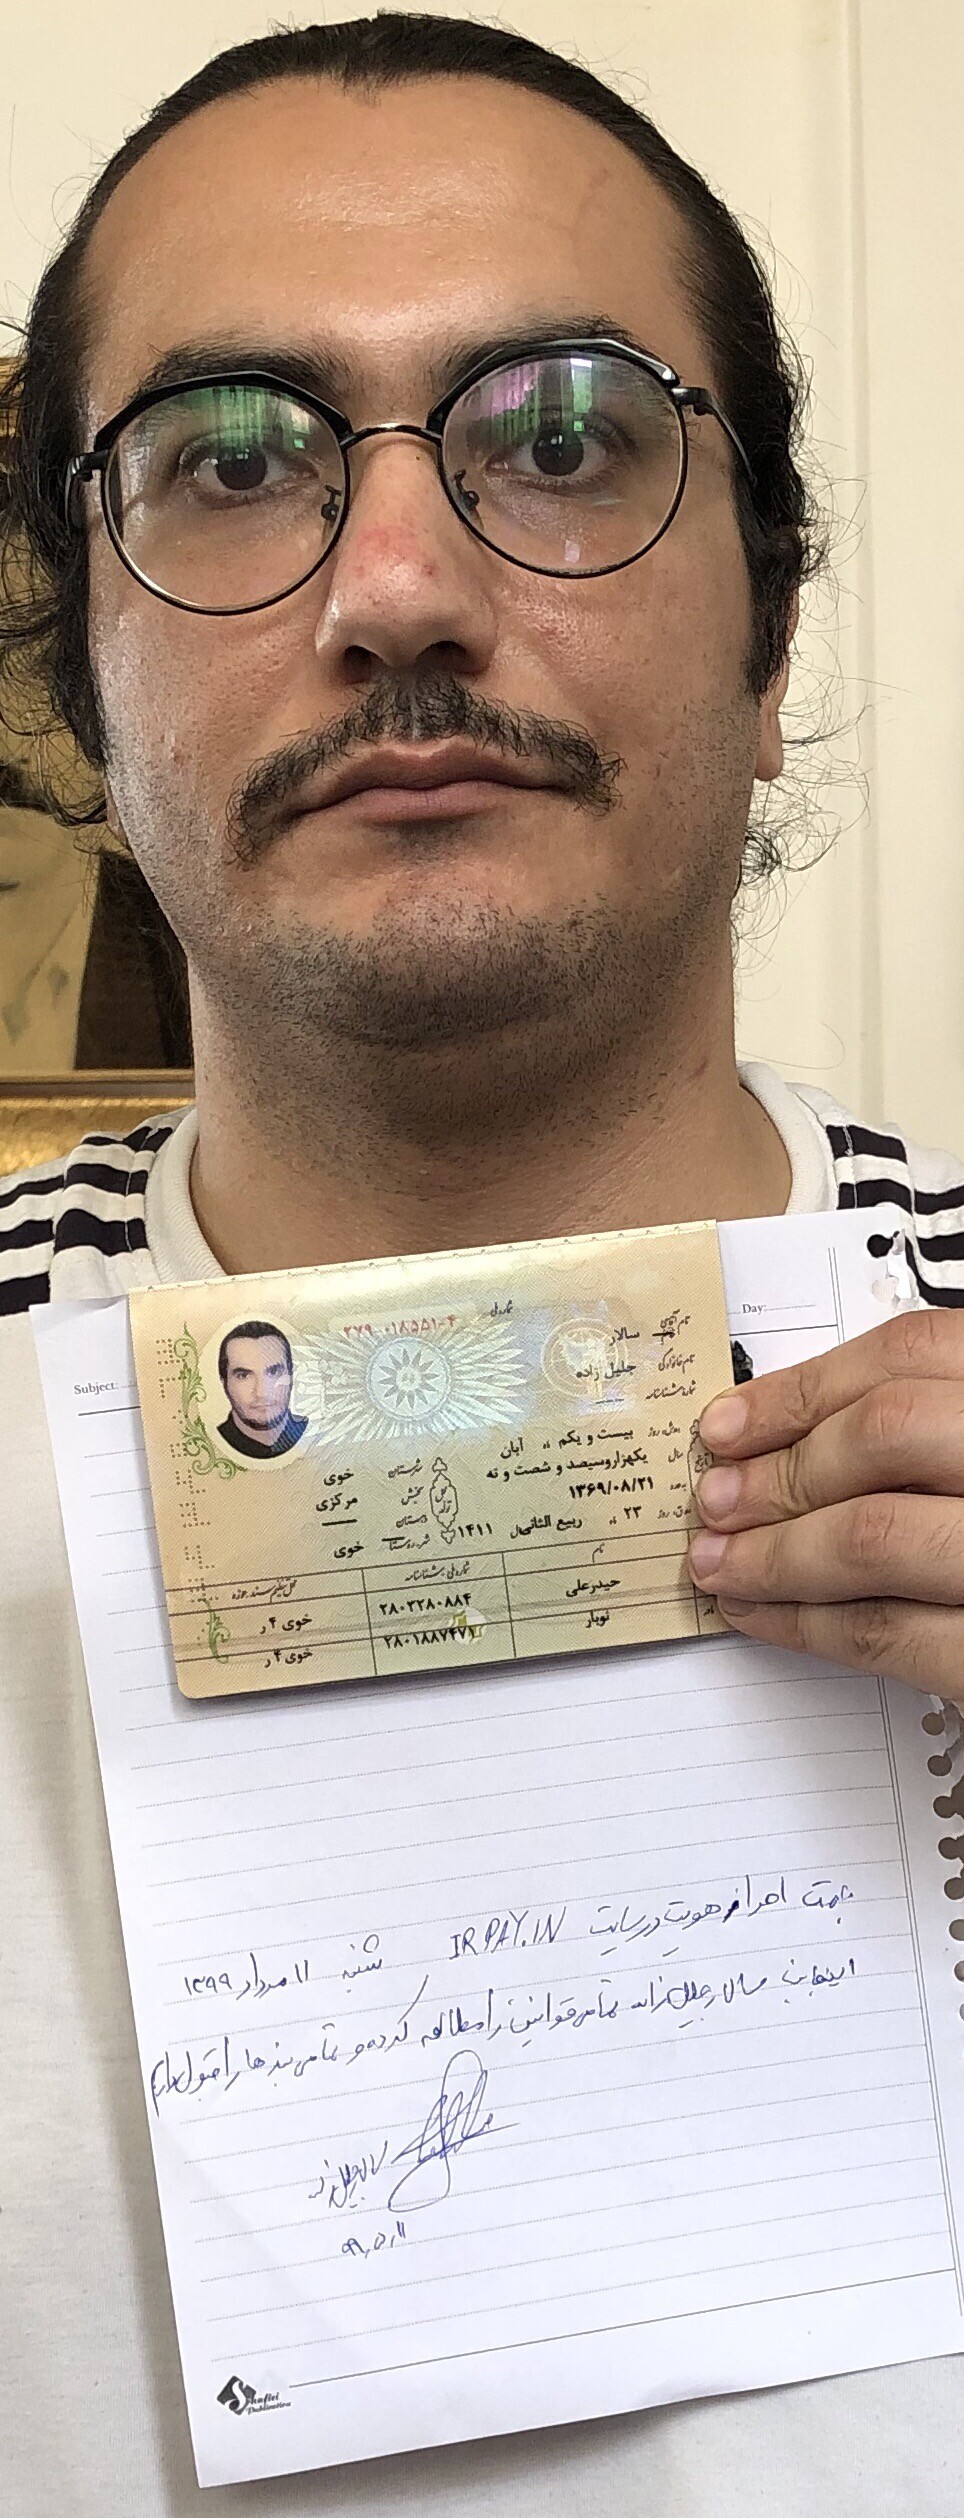 Day:
Subject:
شماره ملی
۲۷۹۰۰۱۸۵۵۱-۴
نام آقای سالار
نام خانوادگی جلیل زاده
شماره شناسنامه
روز بیست و یکم ماه آبان
سال یکهزاروسیصد و شصت و نه
۱۳۶۹/۰۸/۲۱
روز ۲۳ ماه ربیع الثانی سال ۱۴۱۱
شهرستان خوی
بخش مرکزی
دهستان
شهر، روستا خوی
نام
شماره ملی / شناسنامه
حیدرعلی ۲۸۰۲۲۸۰۸۸۴ خوی ۴ر
نوبار ۲۸۰۱۸۸۷۴۷۱ خوی ۴ر
جهت احراز هویت در سایت IRPAY.IN شنبه ۱۱ مرداد ۱۳۹۹
اینجانب سالار جلیل زاده تمامی قوانین را مطالعه کرده و تمامی بندها را قبول دارم
سالار جلیل زاده
۹۹٫۵٫۱۱
Shafiei
Publication